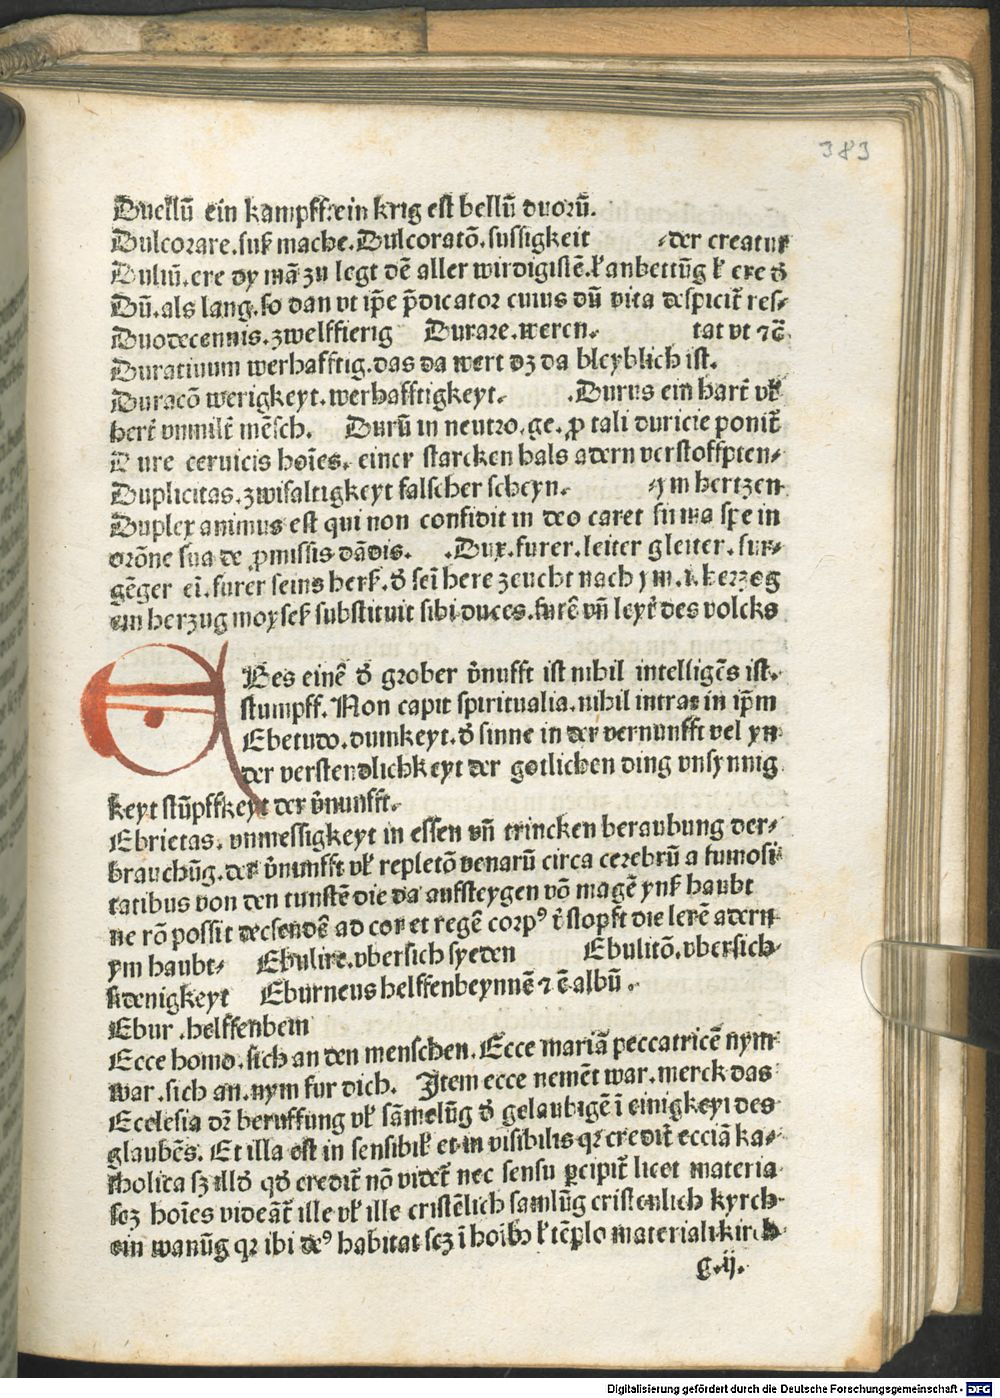 383
Duellū ein kampff:ein krig est bellū duorū.
Dulcorare.suß mache.Dulcoratō.sussigkeit ⸗der creatur
Duliū.ere dy mā zu legt dē aller wirdigistē.ł anbettūg ł ere ð
Dū.als lang.so dan vt ip̄e p̄dicator cuius dū vita despicit̄ res⸗
Duodecennis.zwelffierig Durare.weren. tat vt ⁊c̄
Duratiuum werhafftig.das da wert dz da bleyblich ist.
Duracō werigkeyt.werhafftigkeyt. .Durus ein hart̄ vł
hert̄ vnmilt̄ mēsch. Durū in neutro.ge.ꝓ tali duricie ponit̄
Dure ceruicis hoīes.einer starcken hals adern verstoffpten⸗
Duplicitas.zwifaltigkeyt falscher scheyn. ⸗ym hertzen
Duplex animus est qui non confidit in deo caret firma spe in
orōne sua de ꝓmissis dādis. .Dux.furer.leiter gleiter.fur⸗
gēger ei.furer seins herß.ð sei here zeucht nach ym.i.herzog
ein herzug moyses substituit sibi duces.furē vn̄ leyt̄ des volcks
EBes einē ð grober v̄nufft ist nihil intelligēs ist.
stumpff.Non capit spiritualia.nihil intrat in ip̄m
Ebetudo.dumkeyt.ð sinne in der vernunfft vel yn
der verstendlichkeyt der gotlichen ding vnsynnig
keyt stūpffkeyt der v̄nunfft.
Ebrietas.vnmessigkeyt in essen vn̄ trincken beraubung der⸗
brauchūg.der v̄nunfft vł repletō venarū circa cerebrū a fumosi⸗
tatibus von den tunstē die da aufsteygen vō magē ynß haubt
ne rō possit descendē ad cor et regē corpꝰ v̄stopft die lerē adern
ym haubt⸗ Ebulire.vbersich syeden Ebulitō.vbersich⸗
sydenigkeyt Eburneus helffenbeynnē ⁊ ē albū.
Ebur.helffenbein
Ecce homo.sich an den menschen.Ecce mariā peccatricē nym
war.sich an.nym fur dich. Item ecce nemēt war.merck das
Ecclesia dr̄ beruffung vł sāmelūg ð gelaubigē ī einigkeyt des
glaubēs.Et illa est in sensibił et in visibilis qꝛ credit̄ eccīā ka⸗
tholica sꝫ illđ qđ credit̄ nō videt̄ nec sensu ꝑcipit̄ licet materia
scꝫ hoīes videāt̄ ille vł ille cristēlich samlūg cristenlich kyrch
ein wanūg qꝛ ibi deꝰ habitat scꝫ ī hoibꝫ ł tēplo materiali kirch
g.ij.
Digitalisierung gefördert durch die Deutsche Forschungsgemeinschaft - DFG